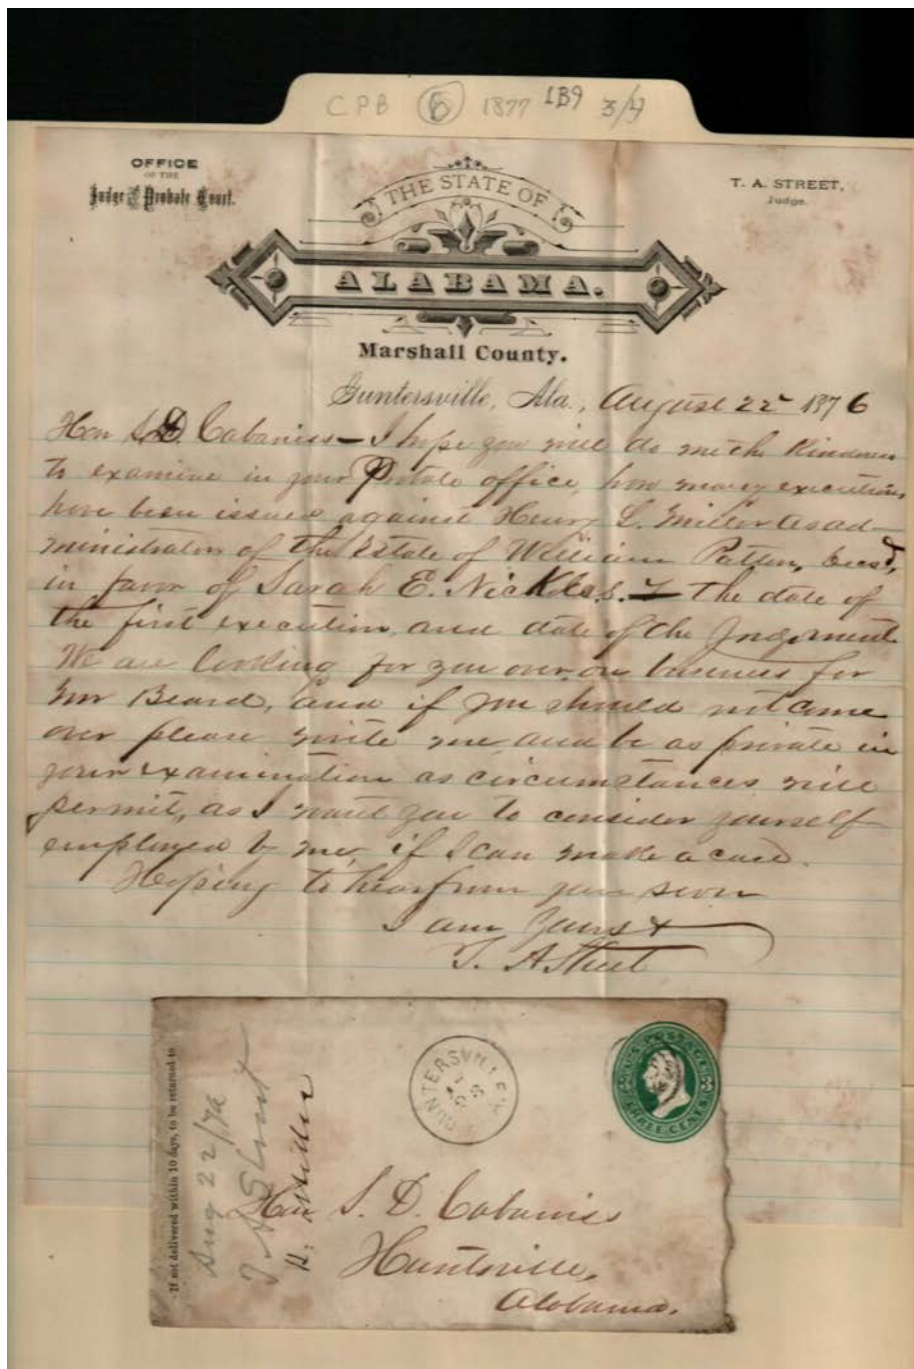 CPB 6 1877 1B9 3/4
OFFICE
OF THE
Judge of Probate Court.
THE STATE OF
ALABAMA.
T. A. STREET,
Judge.
Marshall County.
Guntersville, Ala., August 22 1876
Hon S.D. Cabaniss — I hope you will do me the kindness
to examine in your Probate office, how many executions
have been issued against Henry L. Miller as ad-
ministrator of the Estate of William Patton, decsd,
in favor of Sarah E. Nickles. & the date of
the first execution, and date of the Judgment
We are looking for you over, on business for
Mr Beard, and if you should not come
over please write me, and be as private in
your examination as circumstances will
permit, as I want you to consider yourself
employed by me, if I can make a case.
Hoping to hear from you soon
I am Yours &
T. A Street
If not delivered within 10 days, to be returned to
Aug 22/76
T A Street
H. Miller
GUNTERSVILLE
U.S. POSTAGE
3 3
THREE CENTS
Hon S. D. Cabaniss
Huntsville,
Alabama.